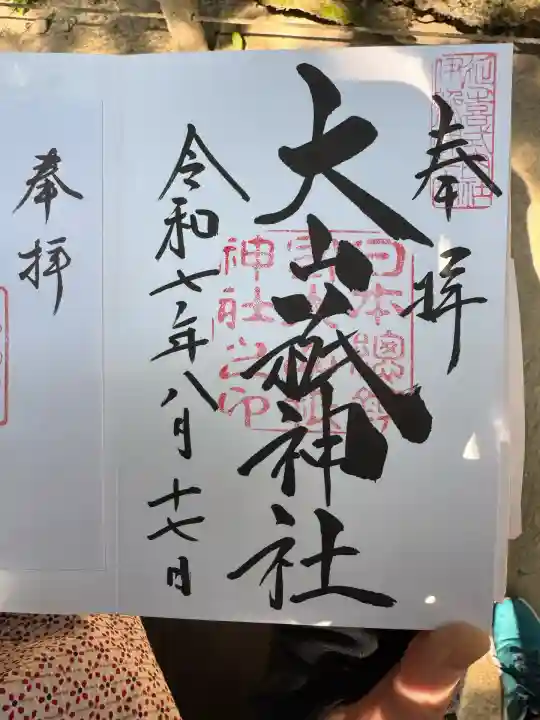 奉拝
大山祇神社
令和七年八月十七日
日本總鎮
神社之印
奉拝